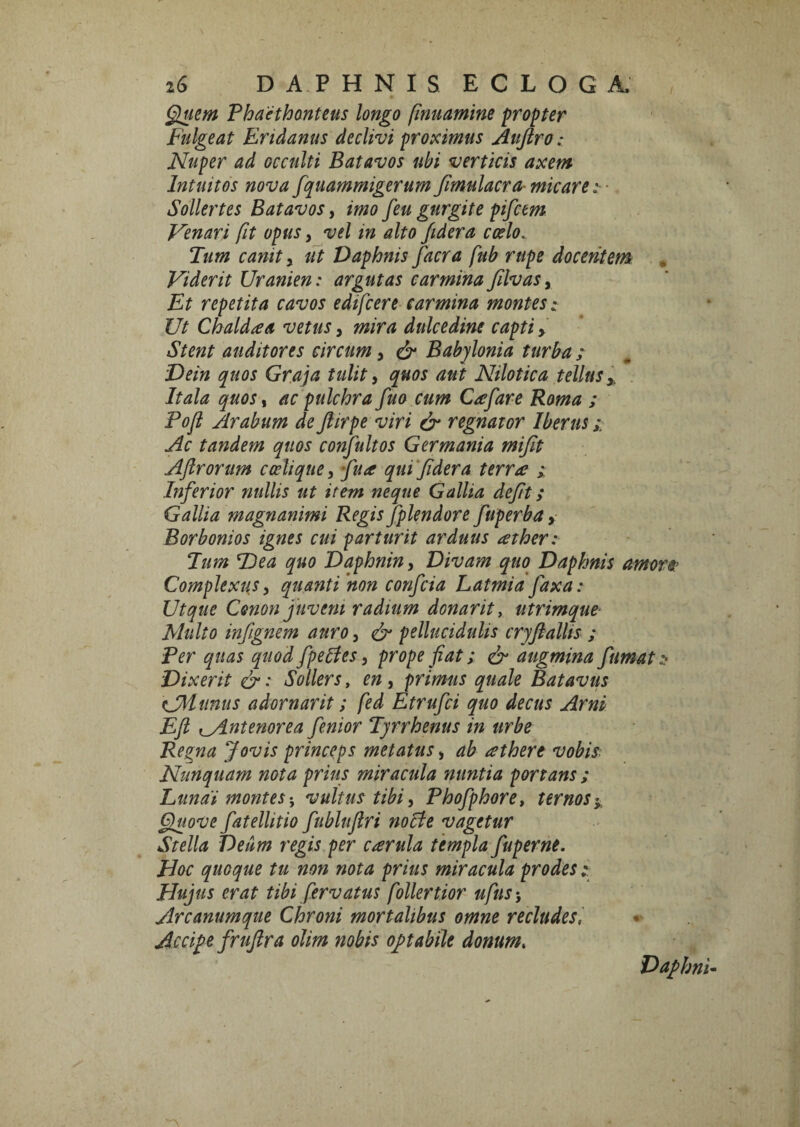 26 DAPHNIS ECLOGA.
Quem Phaëthonteus longo ſinuamine propter
Fulgeat Eridanus declivi proximus Auſtro:
Nuper ad occulti Batavos ubi verticis axem
Intuitos nova ſquammigerum ſimulacra micare:
Sollertes Batavos, imo ſeu gurgite piſcem
Venari ſit opus, vel in alto ſidera cœlo.
Tum canit, ut Daphnis ſacra ſub rupe docentem
Viderit Uranien: argutas carmina ſilvas,
Et repetita cavos ediſcere carmina montes:
Ut Chaldæa vetus, mira dulcedine capti,
Stent auditores circum, & Babylonia turba;
Dein quos Graja tulit, quos aut Nilotica tellus,
Itala quos, ac pulchra ſuo cum Cæſare Roma;
Poſt Arabum de ſtirpe viri & regnator Iberus;
Ac tandem quos conſultos Germania miſit
Aſtrorum cœlique, ſuæ qui ſidera terræ;
Inferior nullis ut item neque Gallia deſit;
Gallia magnanimi Regis ſplendore ſuperba,
Borbonios ignes cui parturit arduus æther:
Tum Dea quo Daphnin, Divam quo Daphnis amore
Complexus, quanti non conſcia Latmia ſaxa:
Utque Conon juveni radium donarit, utrimque
Multo inſignem auro, & pellucidulis cryſtallis;
Per quas quod ſpectes, prope fiat; & augmina ſumat:
Dixerit &: Sollers, en, primus quale Batavus
Munus adornarit; ſed Etruſci quo decus Arni
Eſt Antenorea ſenior Tyrrhenus in urbe
Regna Jovis princeps metatus, ab æthere vobis
Nunquam nota prius miracula nuntia portans;
Lunaï montes; vultus tibi, Phoſphore, ternos;
Quove ſatellitio ſubluſtri nocte vagetur
Stella Deûm regis per cærula templa ſuperne.
Hoc quoque tu non nota prius miracula prodes:
Hujus erat tibi ſervatus ſollertior uſus;
Arcanumque Chroni mortalibus omne recludes,
Accipe fruſtra olim nobis optabile donum.
Daphni-